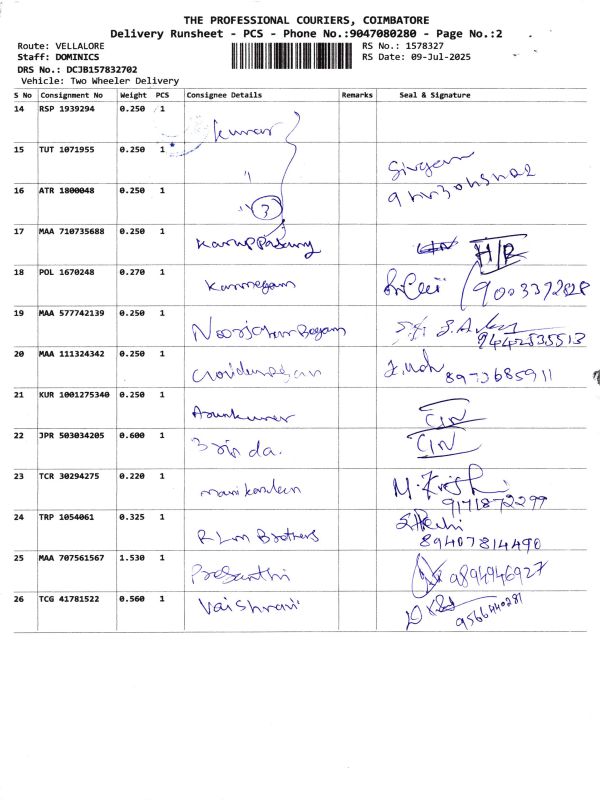 THE PROFESSIONAL COURIERS, COIMBATORE
Delivery Runsheet - PCS - Phone No.:9047080280 - Page No.:2
Route: VELLALORE RS No.: 1578327
Staff: DOMINICS RS Date: 09-Jul-2025
DRS No.: DCJB157832702
Vehicle: Two Wheeler Delivery
S No Consignment No Weight PCS Consignee Details Remarks Seal & Signature
14 RSP 1939294 0.250 1 Kumar
15 TUT 1071955 0.250 1 "
16 ATR 1800048 0.250 1 " 3
17 MAA 710735688 0.250 1 Karuppasamy H/R
18 POL 1670248 0.270 1 Kanmegam 9003372828
19 MAA 577742139 0.250 1 Noorjahan Begam 9442535513
20 MAA 111324342 0.250 1 8973685911
21 KUR 1001275340 0.250 1 Arunkumar CIN
22 JPR 503034205 0.600 1 Brinda. CIN
23 TCR 30294275 0.220 1 manikandan M. Krish 9171872299
24 TRP 1054061 0.325 1 RLM Brothers 89407814490
25 MAA 707561567 1.530 1 Prasanthi 9894946927
26 TCG 41781522 0.560 1 Vaishnavi 9566440281